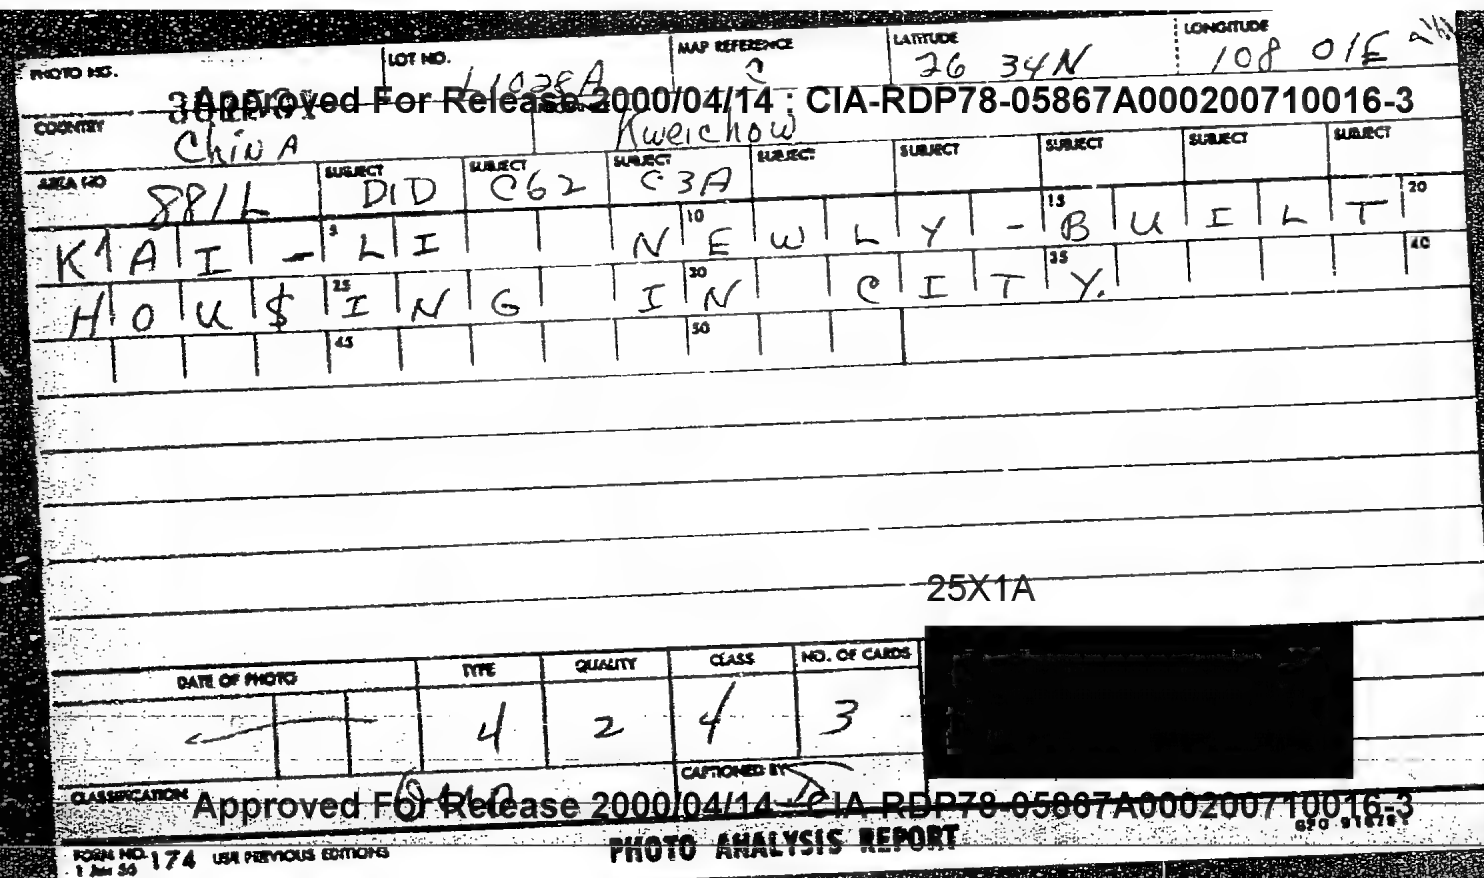 PHOTO NO. LOT NO. L1028A MAP REFERENCE C LATITUDE 26 34N LONGITUDE 108 01E
Approved For Release 2000/04/14 : CIA-RDP78-05867A000200710016-3
COUNTRY China Kweichow
AREA NO 881L SUBJECT DID SUBJECT C62 SUBJECT C3A SUBJECT SUBJECT SUBJECT SUBJECT SUBJECT
5 10 15 20
KAI-LI NEWLY-BUILT
25 30 35 40
HOU$ING IN CITY.
45 50
25X1A
DATE OF PHOTO TYPE QUALITY CLASS NO. OF CARDS
4 2 4 3
CLASSIFICATION CAPTIONED BY
Approved For Release 2000/04/14 : CIA-RDP78-05867A000200710016-3
PHOTO ANALYSIS REPORT
FORM NO. 174 USE PREVIOUS EDITIONS
1 Jan 56